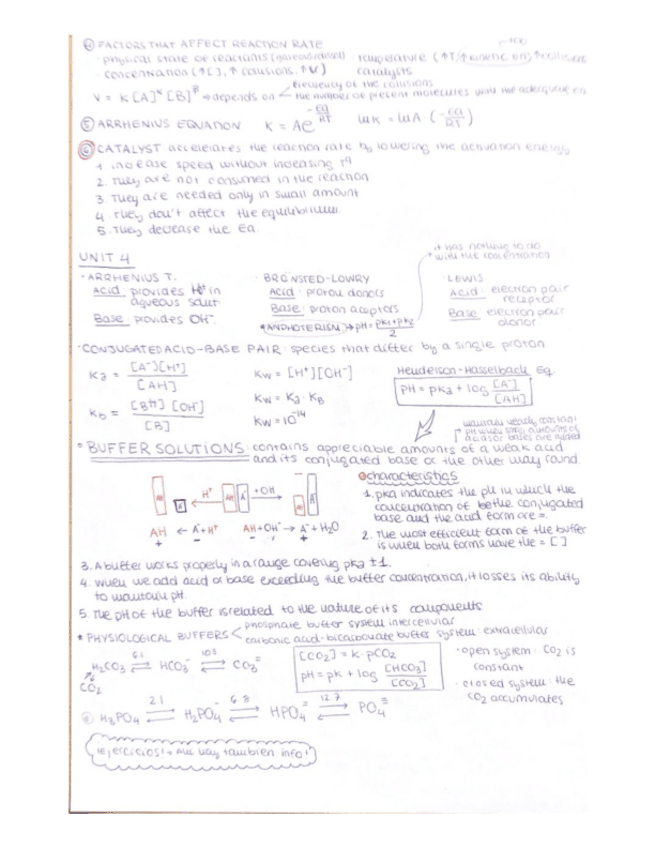 ④ FACTORS THAT AFFECT REACTION RATE
· physical state of reactants · temperature (↑T/↑kinetic en) ↑collisions
· concentration (↑[ ], ↑ collisions, ↑V) catalysts
V = K [A]^α [B]^β → depends on < frequency of the collisions
the number of present molecules with the adequate en
⑤ ARRHENIUS EQUATION K = Ae^(-Ea/RT) ln K = ln A (-Ea/RT)
⑥ CATALYST accelerates the reaction rate by lowering the activation energy
1. increase speed without increasing Tª
2. They are not consumed in the reaction
3. They are needed only in small amount
4. They don't affect the equilibrium.
5. They decrease the Ea.
UNIT 4
it has nothing to do
with the concentration
· ARRHENIUS T. · BRØNSTED-LOWRY · LEWIS
Acid: provides H+ in Acid: proton donors Acid: electron pair
aqueous solut receptor
Base: provides OH-. Base: proton aceptors Base: electron pair
donor.
pH = (pK1+pK2)/2
· CONJUGATED ACID-BASE PAIR: species that differ by a single proton
Ka = [A-][H+] / [AH] Kw = [H+][OH-] Henderson-Hasselback Eq.
Kw = Ka · Kb pH = pKa + log [A-]/[AH]
Kb = [BH] [OH-] / [B] Kw = 10^-14
pH when small amounts of
acids or bases are added
* BUFFER SOLUTIONS: contains appreciable amounts of a weak acid
and its conjugated base or the other way round.
characteristics
AH A- H+ AH A- +OH- AH A-
1. pKa indicates the pH in which the
concentration of bothe the conjugated
base and the acid form are =.
AH ← A- + H+ AH + OH- → A- + H2O
2. The most efficient form of the buffer
is when both forms have the = [ ]
3. A buffer works properly in a range covering pKa ±1.
4. When we add acid or base exceeding the buffer concentration, it losses its ability
to maintain pH.
5. The pH of the buffer is related to the nature of its components
* PHYSIOLOGICAL BUFFERS < phosphate buffer system: intercellular
carbonic acid-bicarbonate buffer system: extracellular
H2CO3 ⇌ 6.1 HCO3- ⇌ 10.3 CO3=
CO2
[CO2] = K · pCO2
pH = pK + log [HCO3]/[CO2]
· open system: CO2 is
constant
· closed system: the
CO2 accumulates
H3PO4 ⇌ 2.1 H2PO4- ⇌ 6.8 HPO4= ⇌ 12.7 PO4≡
¡ejercicios! → Ahí hay también info!